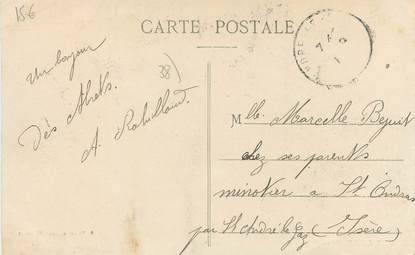 15€
CARTE POSTALE
Un bonjour
Des Abrets.
A. Robilloud.
38
Mlle. Marcelle Bejuit
chez ses parents
minotier a St. Ondras
par St André le Gaz (Isère)